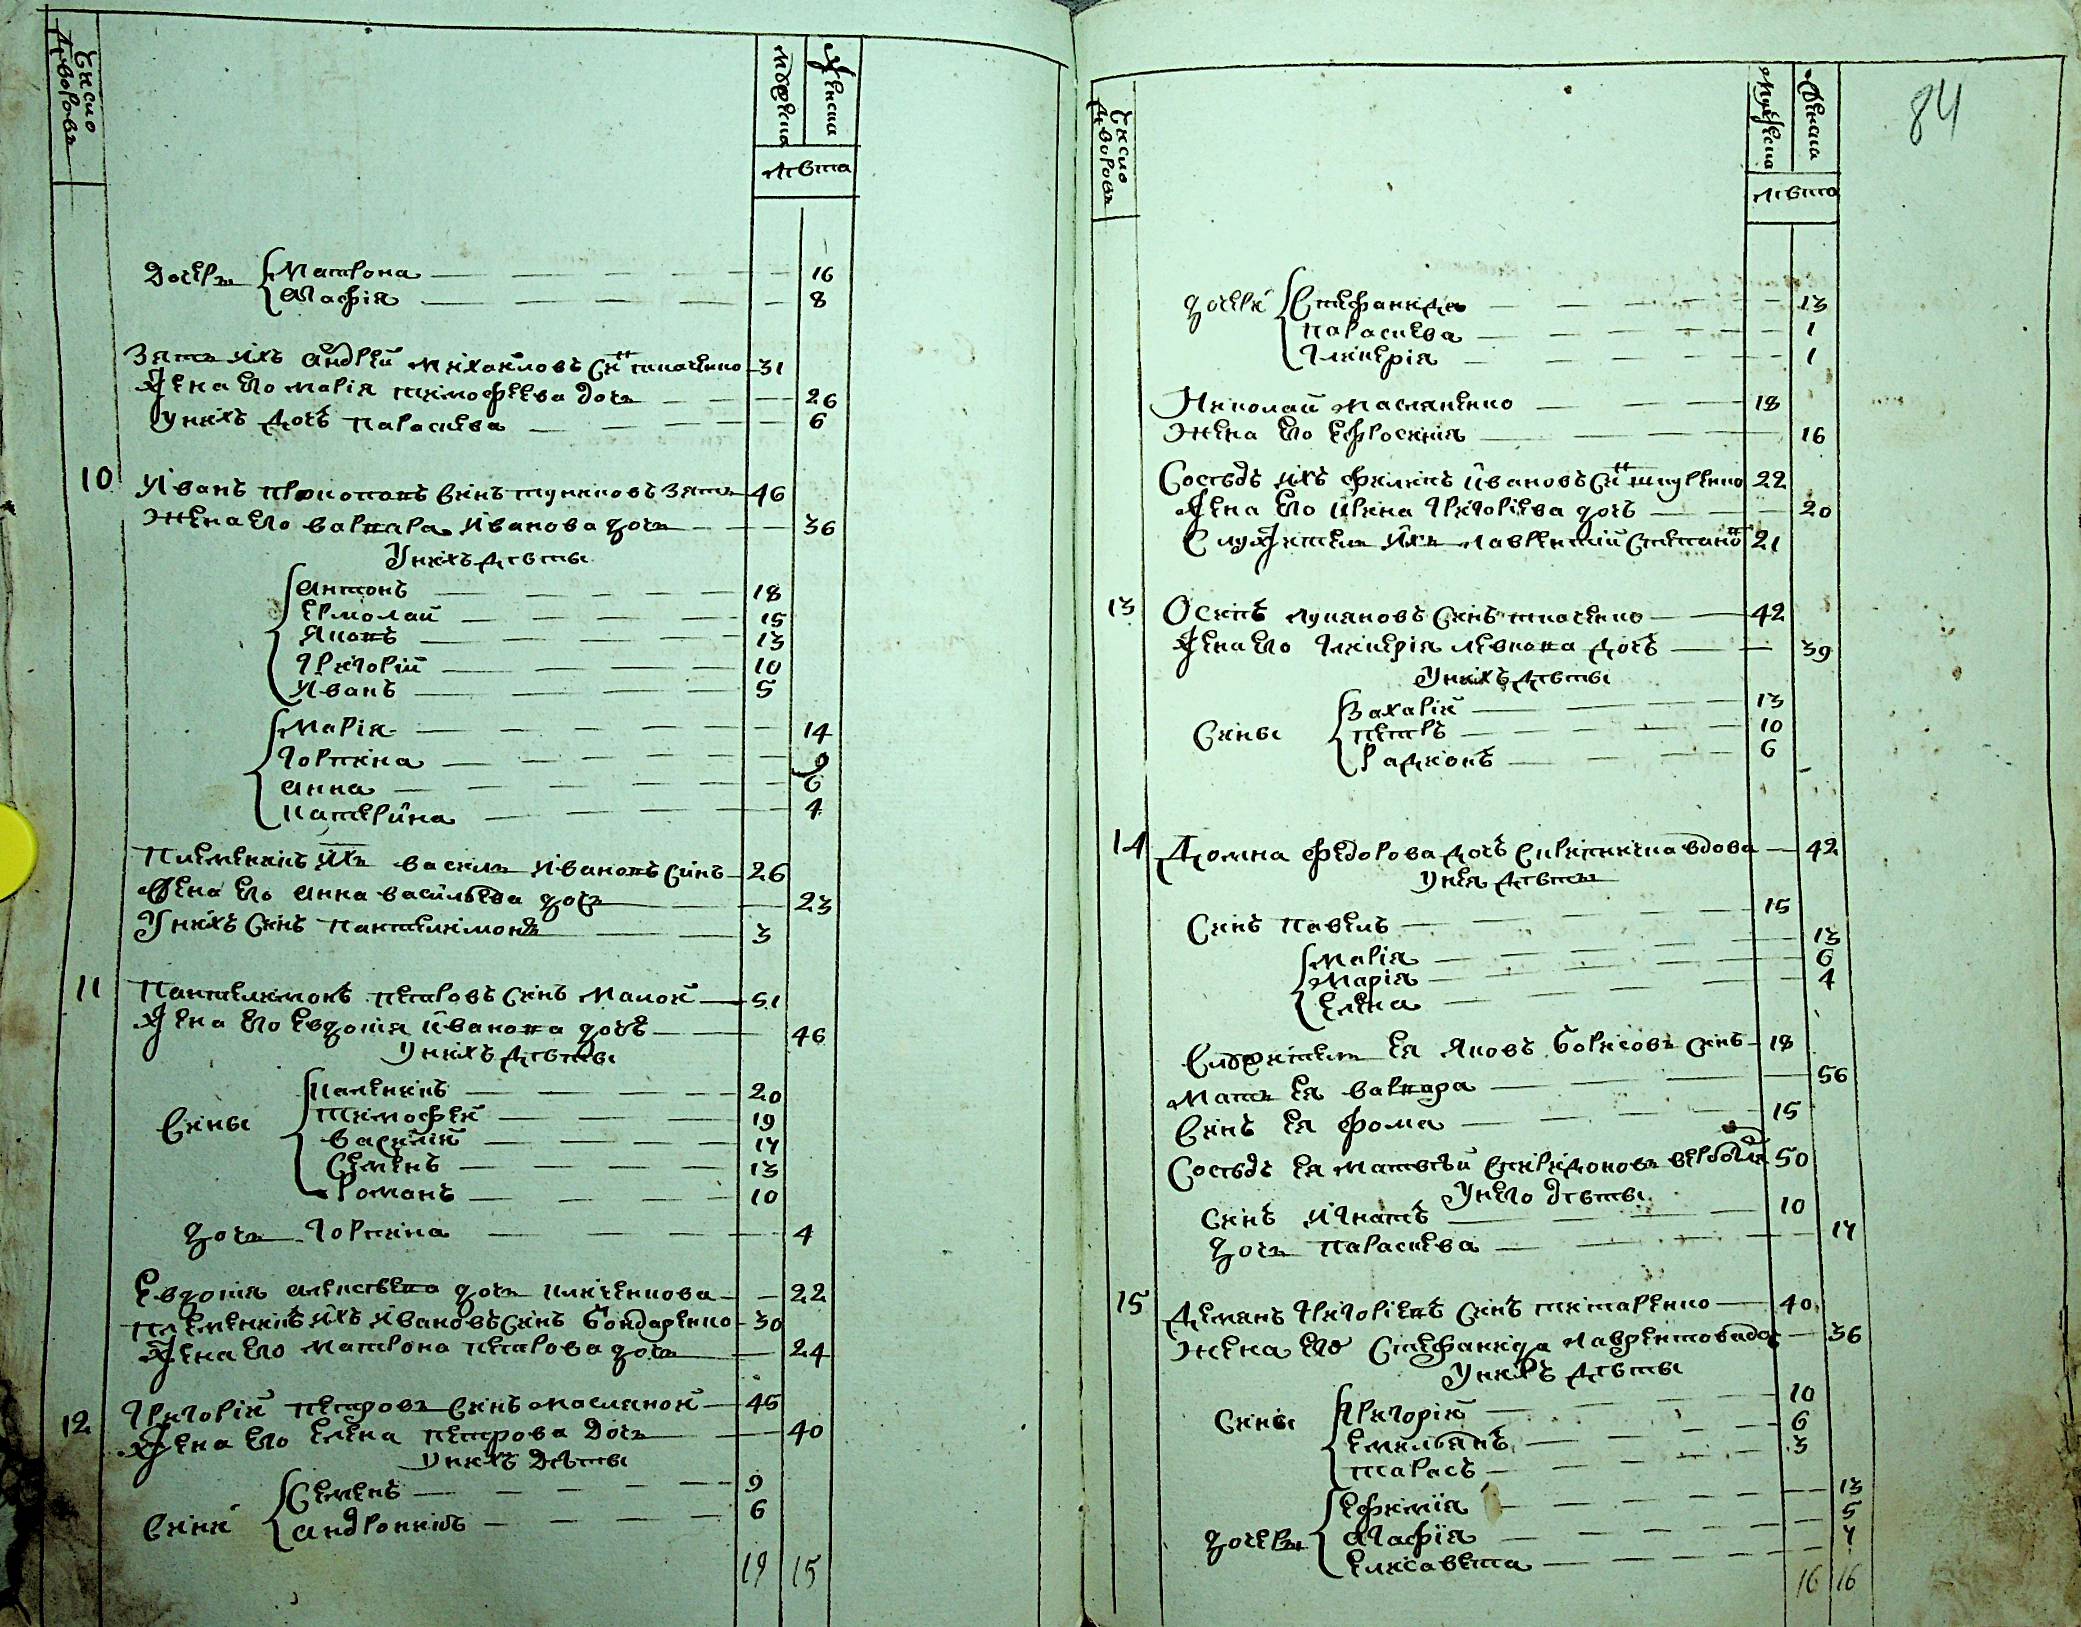 Число дворовъ
мужеска
женска
лѣта
Дочеръ Матрона 16
Агафія 8
Зять ихъ Андрей Михайловъ Сн͠ъ ткаченко 31
Жена его марія тимофеева дочъ 26
Унихъ дочъ параскева 6
10 Иванъ прокоповъ Синъ зять 46
Жена его варвара Иванова дочъ 36
Унихъ дѣты
Антонъ 18
Ермолай 15
Яковъ 13
Григорій 10
Иванъ 5
Марія 14
Горпина 9
Анна 6
Катерина 4
Племеникъ ихъ василь Ивановъ Синъ 26
Жена его Анна васильева дочъ 23
Унихъ Синъ Пантелимонъ 3
11 Пантелимонъ петровъ Синъ Малой 51
Жена его Евдокія Иванова дочъ 46
Унихъ дѣты
Сины Каленикъ 20
Тимофей 19
Василій 17
Семенъ 13
Романъ 10
дочъ Горпина 4
Евдокія алексѣева дочъ 22
племеникъ ихъ Ивановъ Синъ бондаренко 30
Жена его матрона петрова дочъ 24
12 Григорій петровъ Синъ масляной 45
Жена его Елена петрова дочъ 40
Унихъ дѣты
Сини Семенъ 9
Андроникъ 6
19 15
84
Число дворовъ
мужеска
женска
лѣта
дочери Стефанида 13
параскева 1
Гликерія 1
Николай масляненко 18
Жена его Ефросинія 16
Сосѣдъ ихъ филипъ Ивановъ Сн͠ъ 22
Жена его Ирина Григоріева дочъ 20
Служитель ихъ лаврентій Степано͠в 21
13 Осипъ лукяновъ Синъ ткаченко 42
Жена его Гликерія левкова дочъ 39
Унихъ дѣты
Сины Захарій 13
петръ 10
Радионъ 6
14 Домна федорова дочъ вдова 42
Унея дѣты
Синъ павелъ 15
Марія 13
Марія 6
Елена 4
Служитель Ея Яковъ борисовъ синъ 18
Мать Ея варвара 56
Синъ Ея фома 15
Сосѣдъ Ея матвѣй Спиридоновъ 50
Унего дѣты
Синъ Игнатъ 10
дочъ параскева 17
15 Демянъ Григоріевъ Синъ титаренко 40
Жена его Стефанида лаврентова доч 36
Унихъ дѣты
Сины Григорій 10
Емельянъ 6
тарасъ 3
дочеръ Ефимія 13
Агафія 5
Елисавета 4
16 16